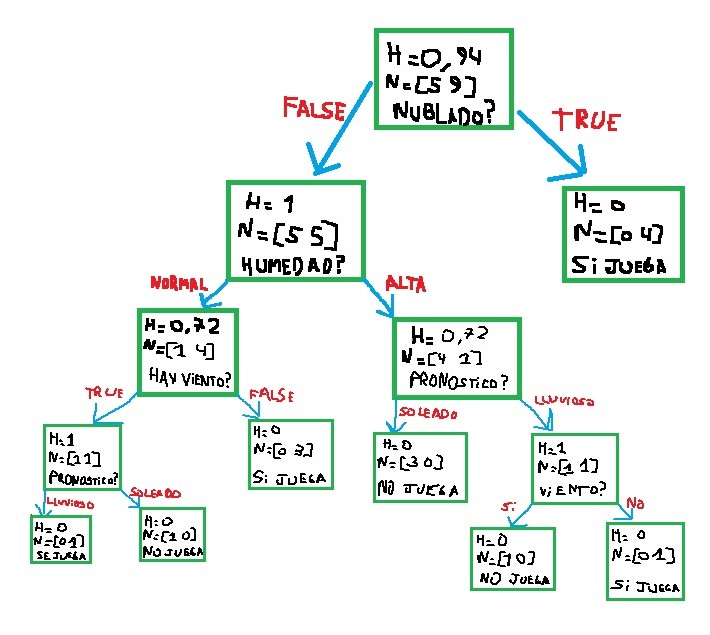 H=0,94
N=[5 9]
NUBLADO?
FALSE
TRUE
H=1
N=[5 5]
HUMEDAD?
H=0
N=[0 4]
Si JUEGA
NORMAL
ALTA
H=0,72
N=[1 4]
HAY VIENTO?
H=0,72
N=[4 1]
PRONOSTICO?
TRUE
FALSE
SOLEADO
LLUVIOSO
H=1
N=[1 1]
PRONOSTICO?
H=0
N=[0 3]
Si JUEGA
H=0
N=[3 0]
NO JUEGA
H=1
N=[1 1]
ViENTO?
LLUVIOSO
SOLEADO
Si
NO
H=0
N=[0 1]
SE JUEGA
H=0
N=[1 0]
NO JUEGA
H=0
N=[1 0]
NO JUEGA
H=0
N=[0 1]
Si JUEGA